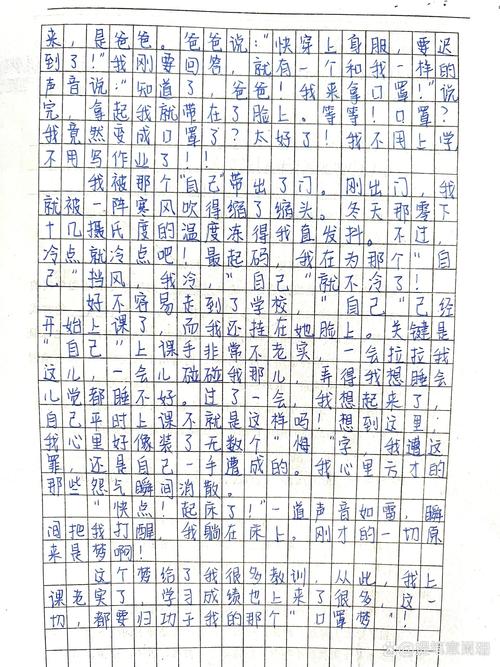 来，是爸爸。爸爸说：“快穿上身服，要迟
到了！”我刚要回答，就有一个和我一样的
声音说：“知道了，爸爸！我来拿口罩！”说
完，拿起我就带在了脸上。等等！口罩？
我竟然变成口罩了？太好了！我不用上学
不用写作业了！！
我被那个“自己”带出了门。刚出门，我
就被一阵寒风吹得缩了缩头。冬天那零下
十几摄氏度的温度冻得我直发抖。不过，
冷点就冷点吧！最起码，我在为那个“自
己”挡风，我冷，“自己”就不冷了！
好不容易走到了学校，“自己”已经
开始上课了，而我还挂在她脸上。关键是
“自己”上课手非常不老实，一会拉拉我
这儿，一会儿碰碰我那儿，弄得我想睡会
儿觉都睡不好。过了一会，我想起来了，
自己平时上课不就是这样吗！想到这里，
我心里好像装了无数个“悔”字，我遭这
罪，还是自己一手造成的。我心里方才的
那些怨气瞬间消散。
“快点！起床了！”一道声音如雷，瞬
间把我打醒，我躺在床上。刚才的一切原
来是梦啊！
这个梦给了我很多教训，从此，我上
课老实了，学习成绩也上来了很多，这一
切，都要归功于我的那个“口罩梦”！